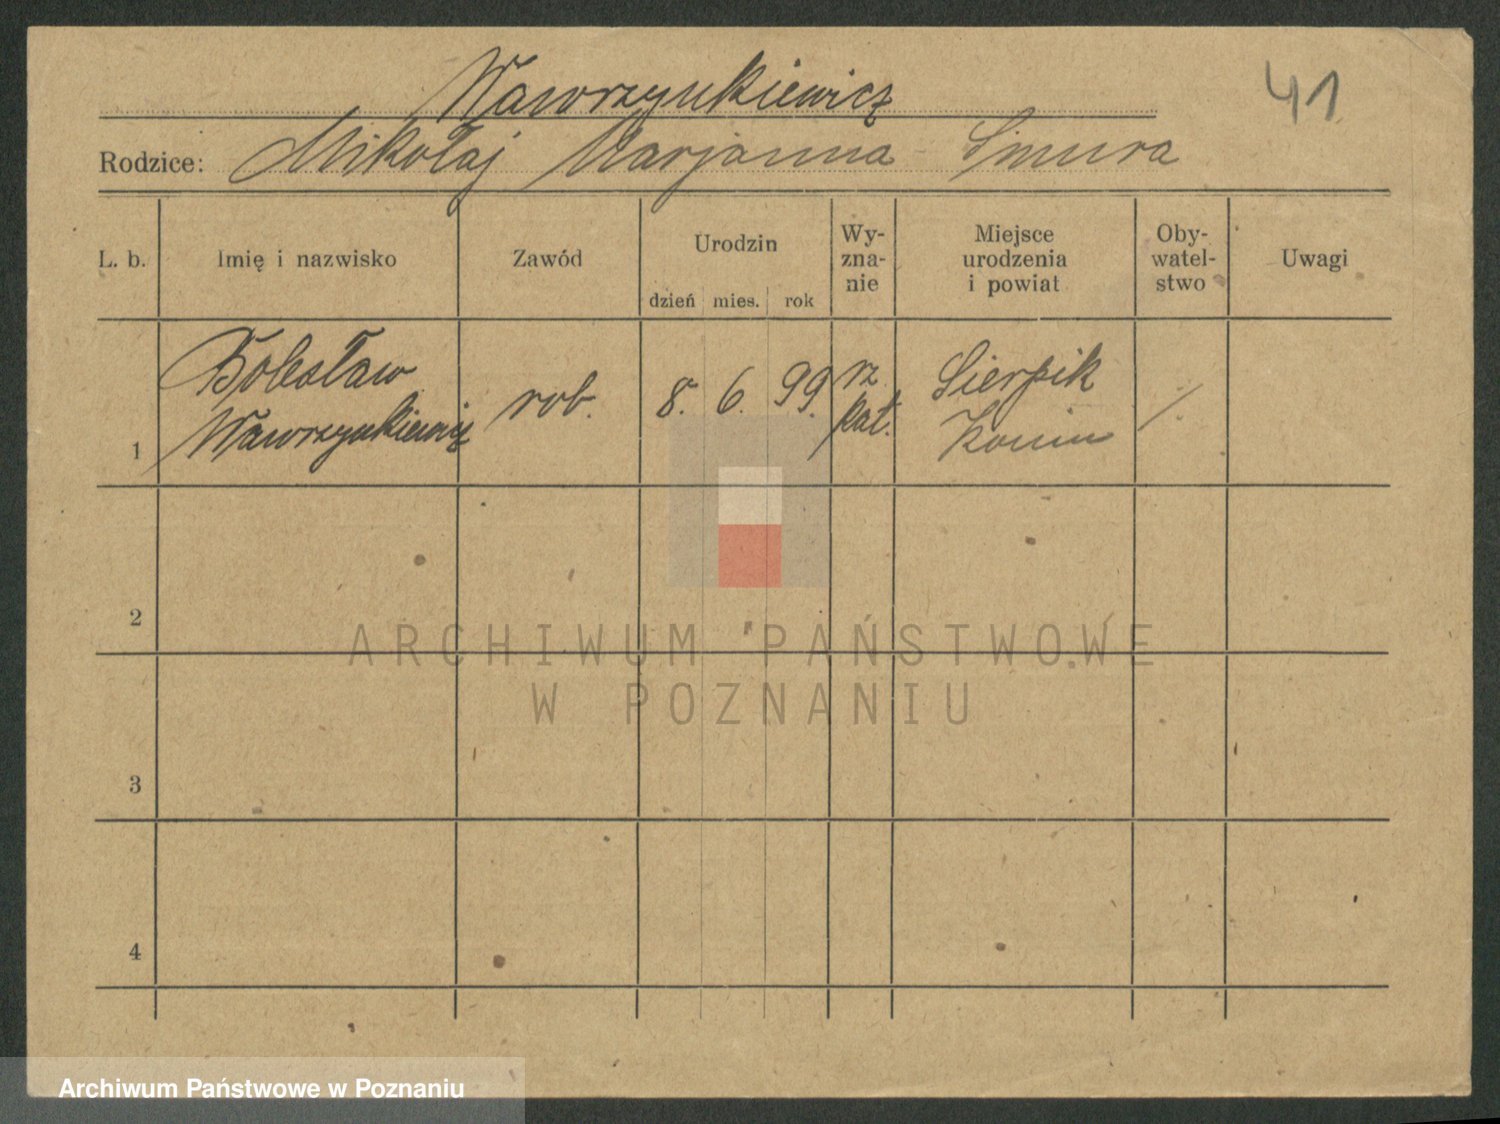 Wawrzynkiewicz
41
Rodzice: Mikołaj Marjanna - Smura
L. b. Imię i nazwisko Zawód Urodzin dzień mies. rok Wy-zna-nie Miejsce urodzenia i powiat Oby-watel-stwo Uwagi
Bolesław rob. 8. 6. 99. rz Sierpik
1 Wawrzynkiewicz kat. Konin
2
3
4
ARCHIWUM PAŃSTWOWE
W POZNANIU
Archiwum Państwowe w Poznaniu